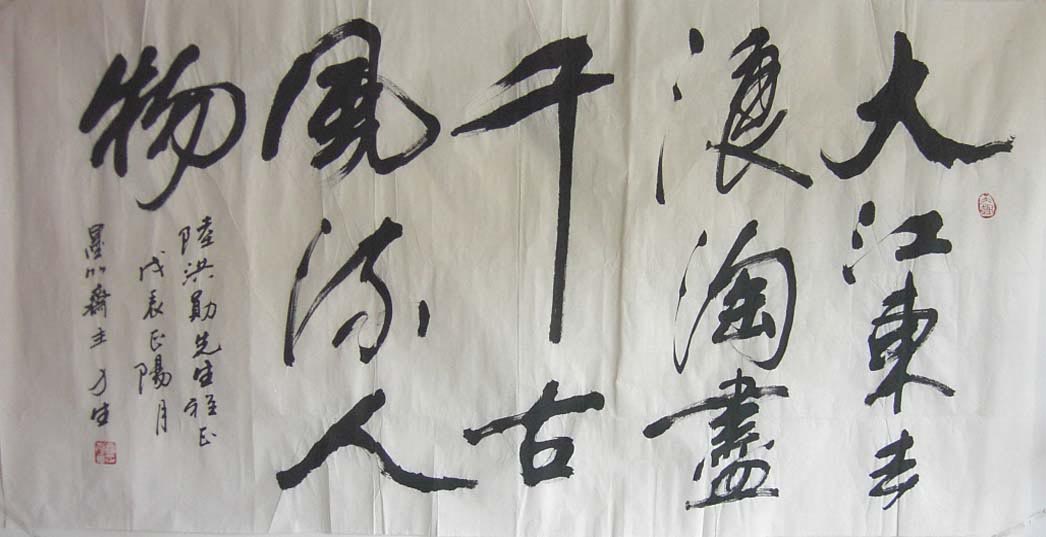 大江東去
浪淘盡
千古
風流人
物
陸洪勛先生雅正
戊辰正陽月
墨竹齋主方生